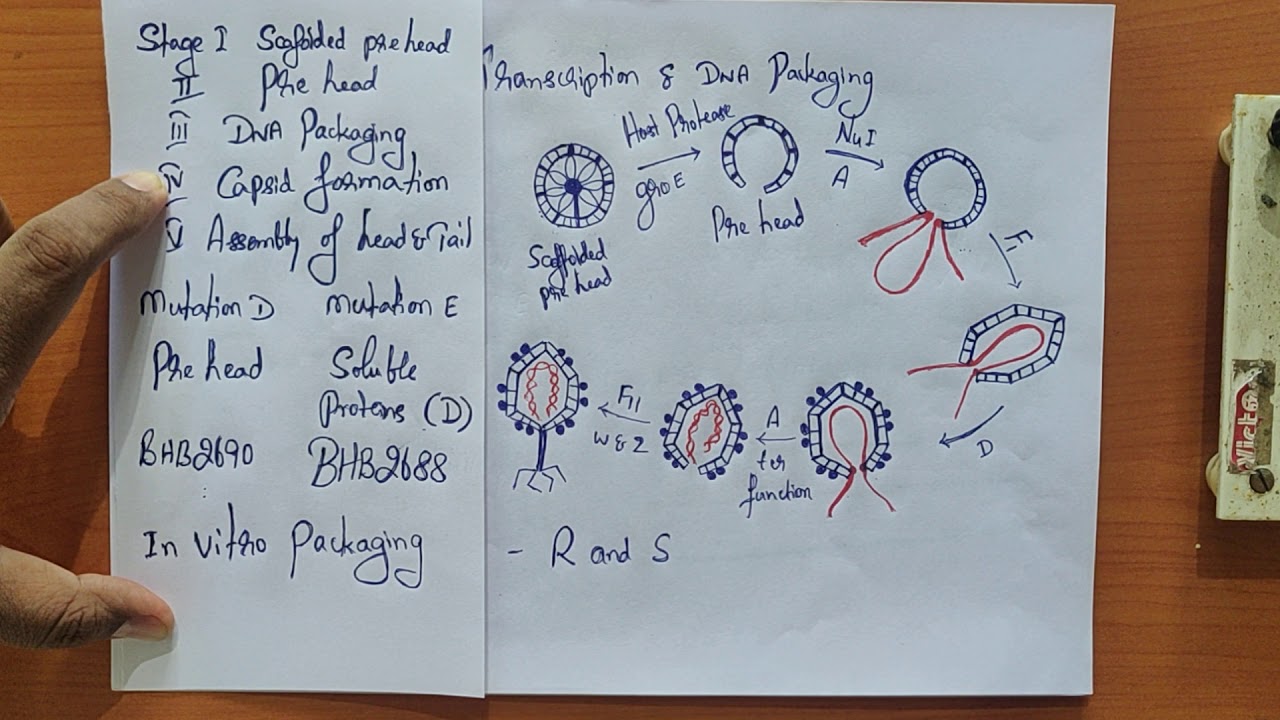 Stage I Scaffolded prehead
II Pre head
III DNA Packaging
IV Capsid formation
V Assembly of head & Tail
Mutation D Mutation E
Pre head Soluble
Proteins (D)
BHB2690 BHB2688
In Vitro Packaging
Transcription & DNA Packaging
Host Protease
groE
NuI
A
Scaffolded
pre head
Pre head
FI
D
A
ter
function
FII
W & Z
- R and S